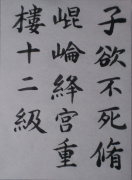 子欲不死脩
崐崘絳宮重
樓十二級